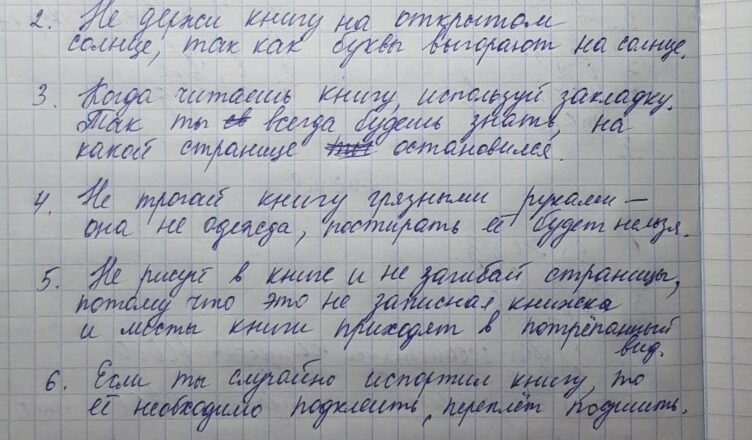 2. Не держи книгу на открытом
солнце, так как буквы выгорают на солнце.
3. Когда читаешь книгу, используй закладку.
Так ты всегда будешь знать, на
какой странице остановился.
4. Не трогай книгу грязными руками –
она не одежда, постирать её будет нельзя.
5. Не рисуй в книге и не загибай страницы,
потому что это не записная книжка
и листы книги приходят в потрёпанный
вид.
6. Если ты случайно испортил книгу, то
её необходимо подклеить, переплёт подшить.